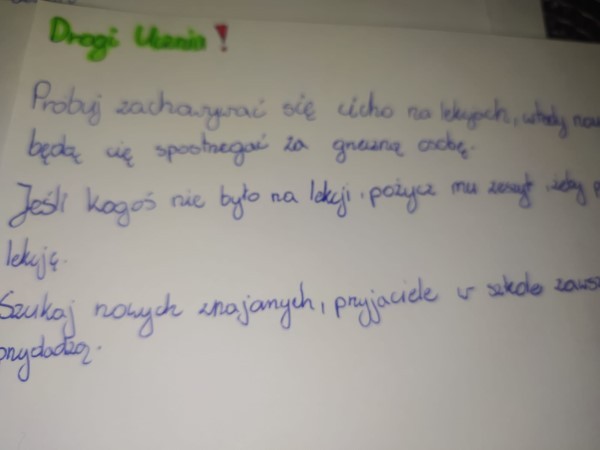 Drogi Uczniu!
Próbuj zachowywać się cicho na lekcjach, wtedy
będą cię spostrzegać za grzeczną osobę.
Jeśli kogoś nie było na lekcji, pożycz mu zeszyt, żeby
lekcję.
Szukaj nowych znajomych, przyjaciele w szkole
przydadzą.